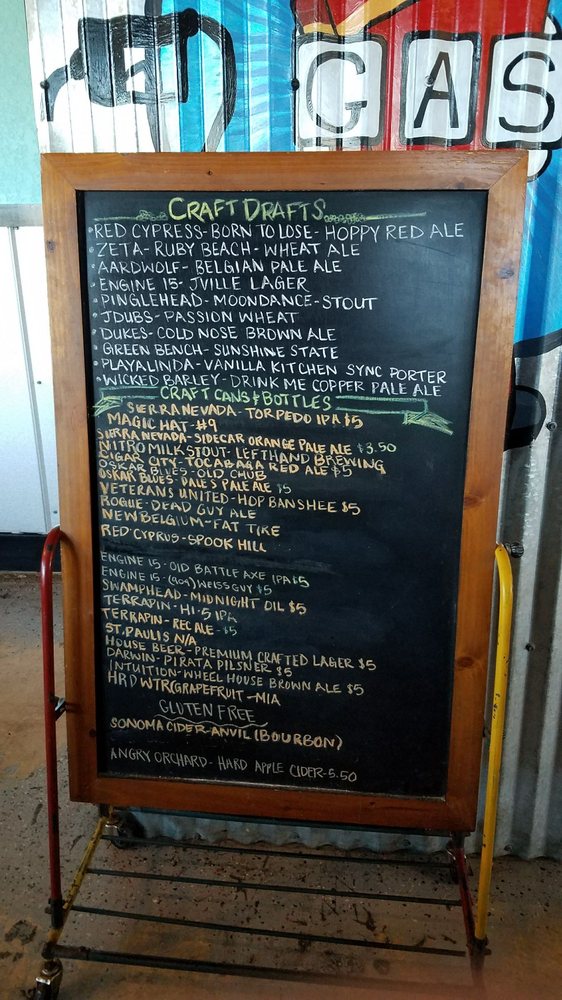 GAS
CRAFT DRAFTS
•RED CYPRESS-BORN TO LOSE-HOPPY RED ALE
•ZETA-RUBY BEACH-WHEAT ALE
•AARDWOLF-BELGIAN PALE ALE
•ENGINE 15-JVILLE LAGER
•PINGLEHEAD-MOONDANCE-STOUT
•JDUBS-PASSION WHEAT
•DUKES-COLD NOSE BROWN ALE
•GREEN BENCH-SUNSHINE STATE
•PLAYALINDA-VANILLA KITCHEN SYNC PORTER
•WICKED BARLEY-DRINK ME COPPER PALE ALE
CRAFT CANS & BOTTLES
SIERRA NEVADA-TORPEDO IPA $5
MAGIC HAT-#9
SIERRA NEVADA-SIDECAR ORANGE PALE ALE $3.50
NITRO MILK STOUT-LEFTHAND BREWING
CIGAR CITY-TOCABAGA RED ALE $5
OSKAR BLUES-OLD CHUB
OSKAR BLUES-DALE'S PALE ALE $5
VETERANS UNITED-HOP BANSHEE $5
ROGUE-DEAD GUY ALE
NEW BELGIUM-FAT TIRE
RED CYPRUS-SPOOK HILL
ENGINE 15-OLD BATTLE AXE IPA $5
ENGINE 15-(904) WEISS GUY $5
SWAMPHEAD-MIDNIGHT OIL $5
TERRAPIN-HI-5 IPA
TERRAPIN-REC ALE-$5
ST. PAULIS N/A
HOUSE BEER-PREMIUM CRAFTED LAGER $5
DARWIN-PIRATA PILSNER $5
INTUITION-WHEEL HOUSE BROWN ALE $5
HRD WTR(GRAPEFRUIT-MIA
GLUTEN FREE
SONOMA CIDER-ANVIL (BOURBON)
ANGRY ORCHARD-HARD APPLE CIDER-5.50